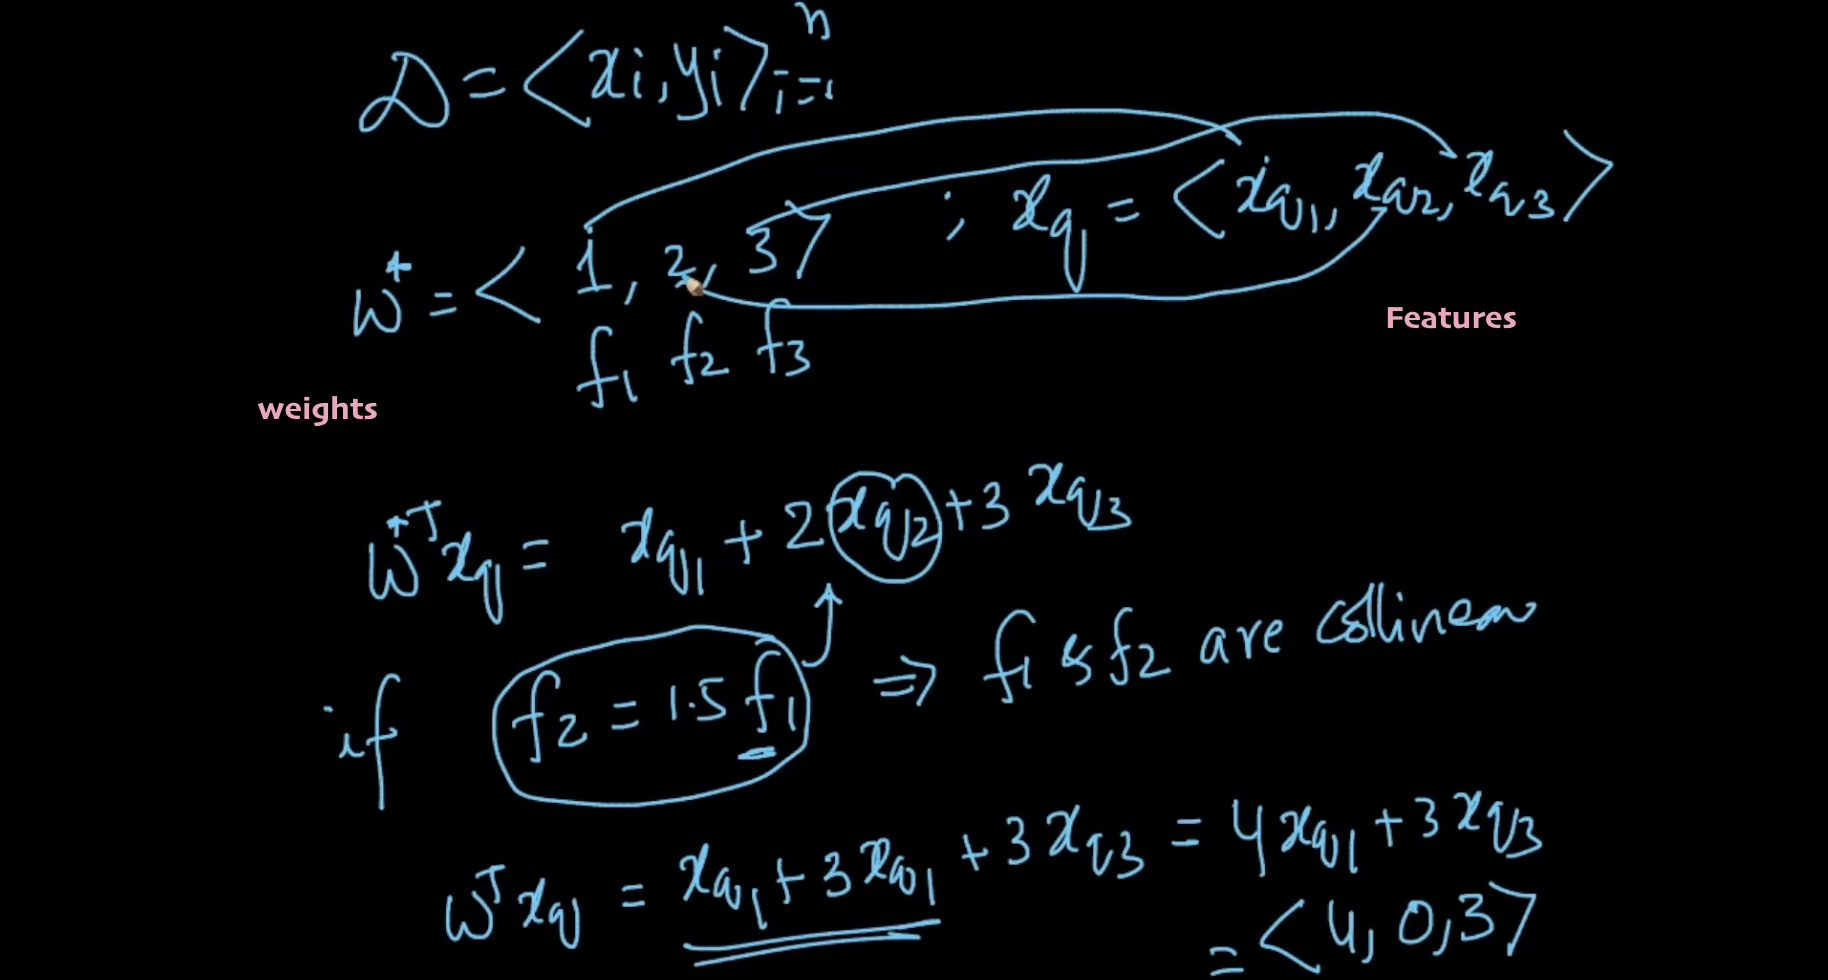 D = <xi, yi>ⁿi=1
w* = < 1, 2, 3> ; xq = <xq1, xq2, xq3>
f1 f2 f3
Features
weights
w*ᵀxq = xq1 + 2xq2 + 3xq3
if f2 = 1.5 f1 ⇒ f1 & f2 are collinear
wᵀxq = xq1 + 3xq1 + 3xq3 = 4xq1 + 3xq3
= <4, 0, 3>